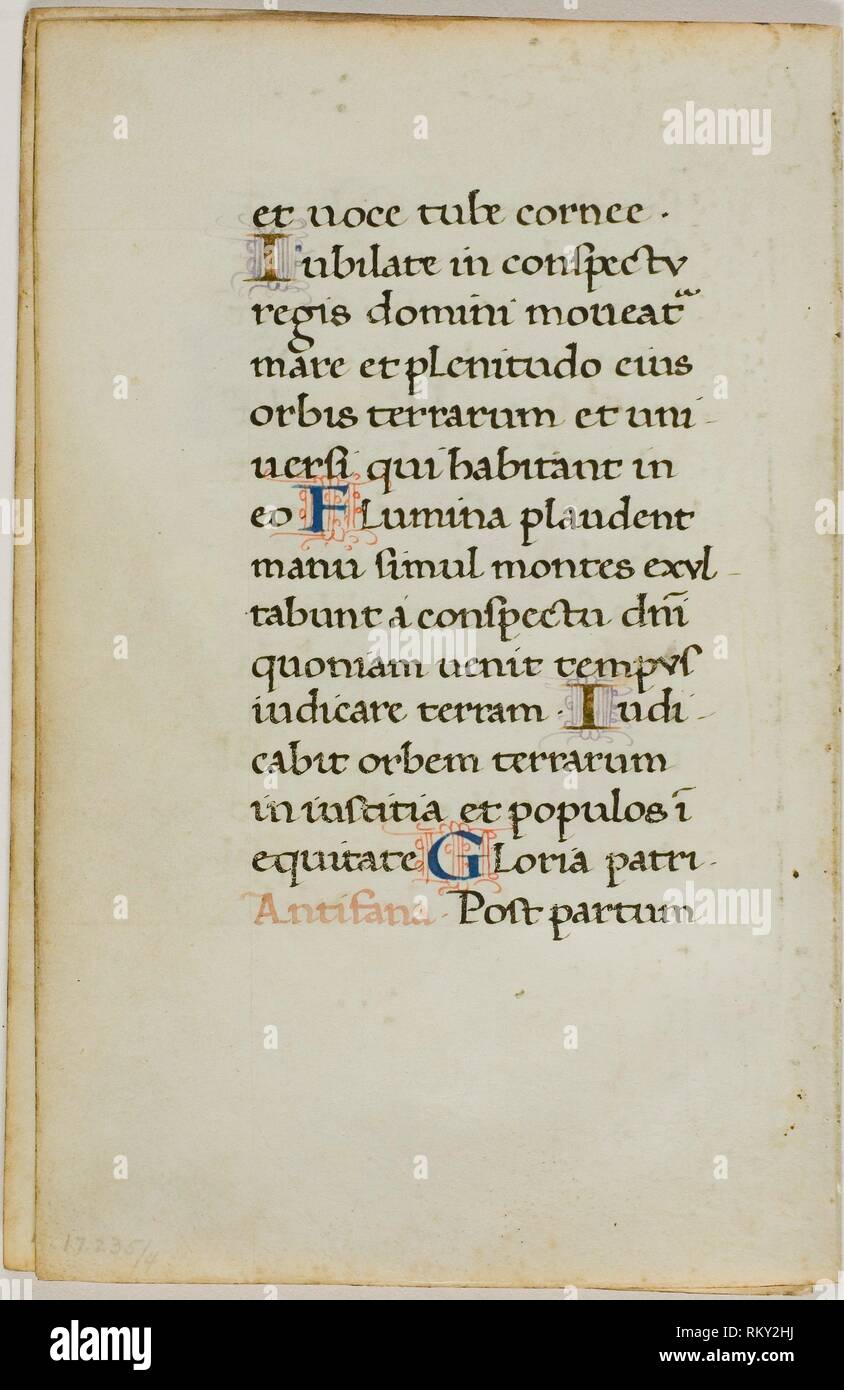 et uoce tube cornee ·
Iubilate in conspectv
regis domini moueatᷓ
mare et plenitudo eius
orbis terrarum et uni-
uersi qui habitant in
eo FLumina plaudent
manu simul montes exvl-
tabunt a conspectu dn̄i
quoniam uenit tempvs
iudicare terram · Iudi-
cabit orbem terrarum
in iustitia et populos ī
equitate GLoria patri ·
Antifana · Post partum
17.235/4
alamy
Image ID: RKY2HJ
www.alamy.com